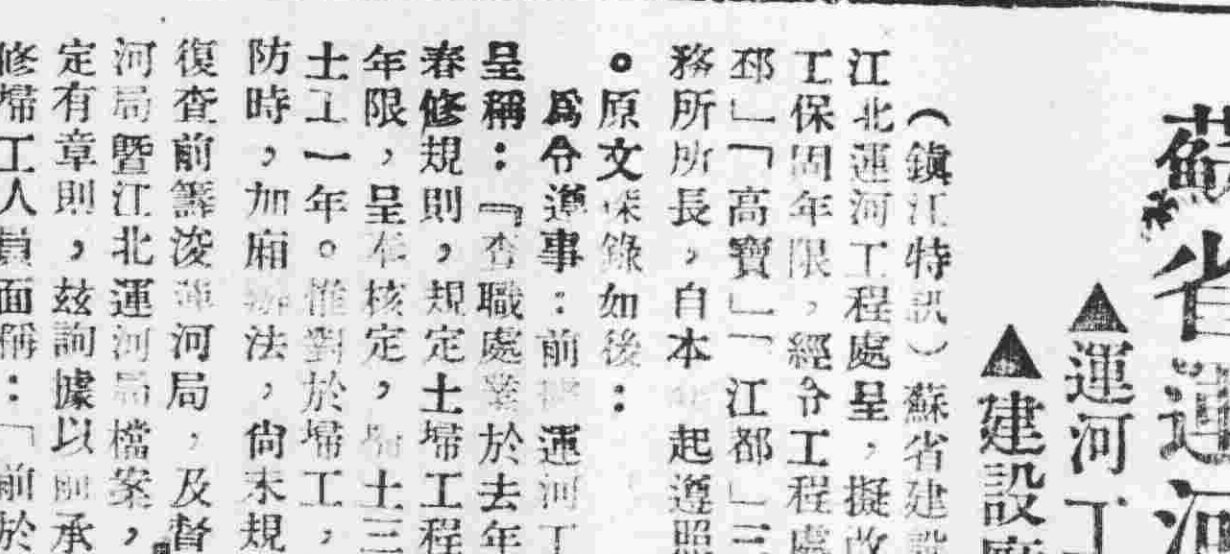 蘇省運河
▲運河工
▲建設廳
（鎭江特訊）蘇省建設
江北運河工程處呈，擬改
工保固年限，經令工程處
邳」「高寶」「江都」三
務所所長，自本年起遵照
。原文採錄如後：
爲令遵事：前據運河工
呈稱：『查職處業於去年
春修規則，規定土埽工程
年限，呈奉核定，埽土三
土工一年。惟對於埽工，
防時，加廂辦法，尙未規
復查前籌浚運河局，及督
河局曁江北運河局檔案，
定有章則，玆詢據以前承
修埽工人員面稱：「前於